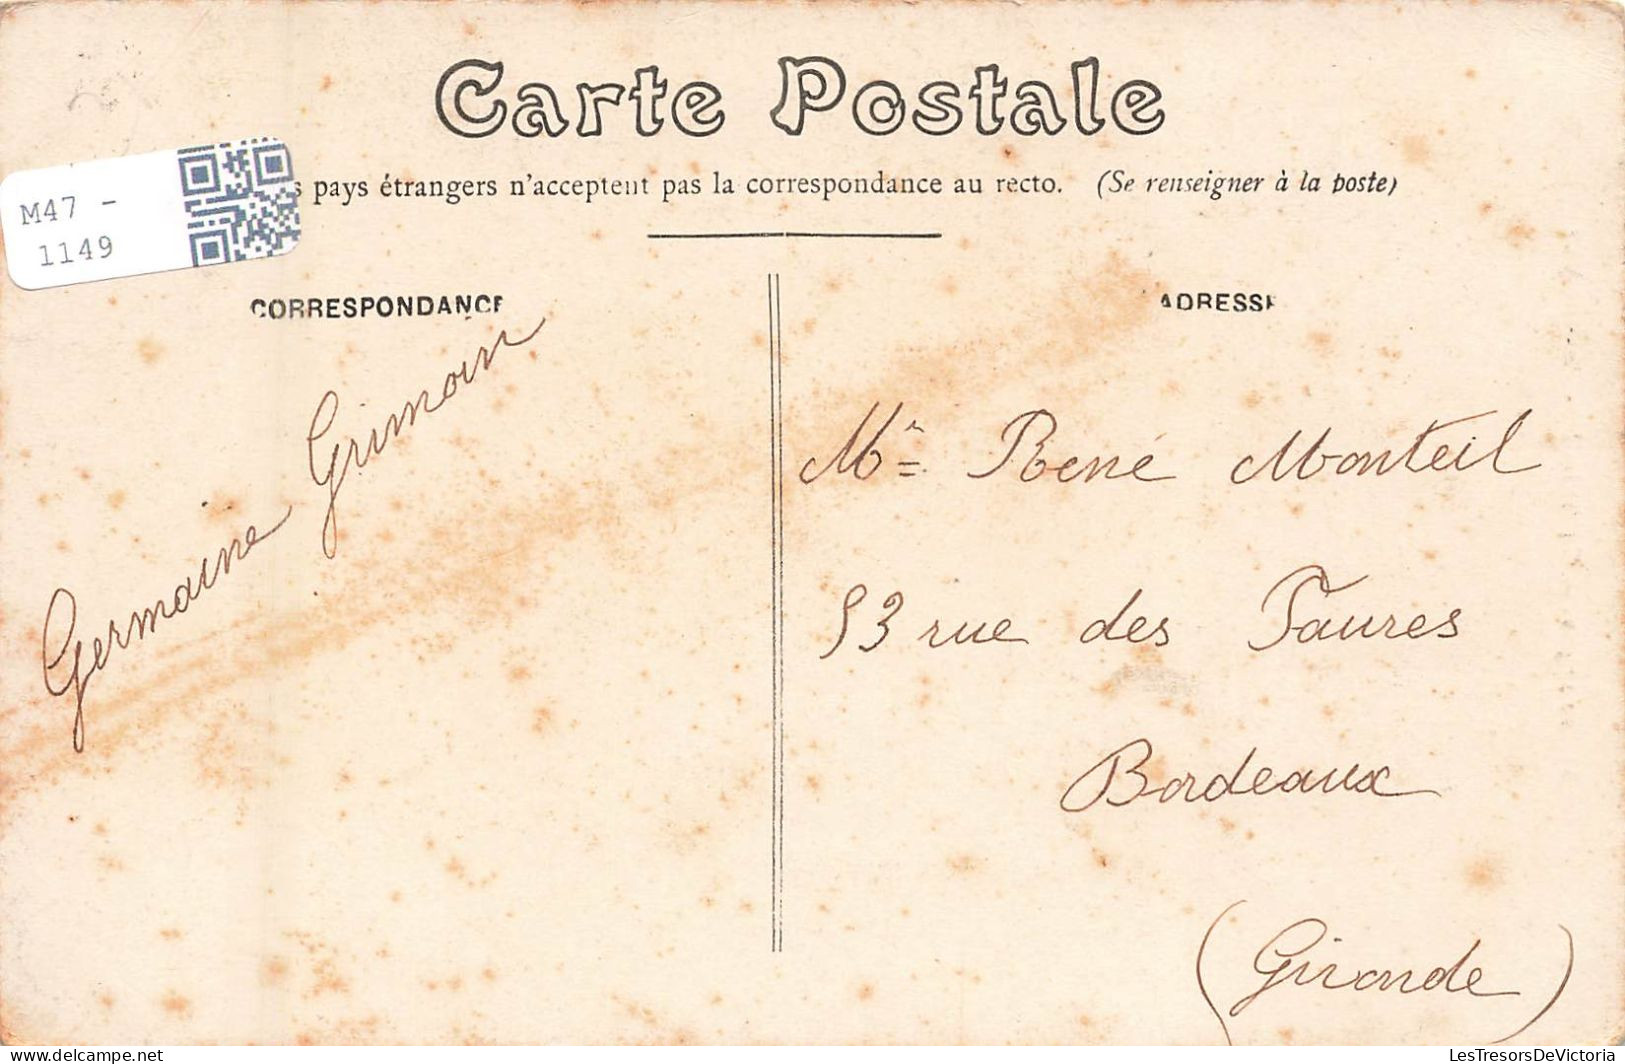 Carte Postale
pays étrangers n'acceptent pas la correspondance au recto. (Se renseigner à la poste)
M47 -
1149
CORRESPONDANCE
ADRESSE
Germaine Grimoin
Mr René Monteil
53 rue des Faures
Bordeaux
(Gironde)
LesTresorsDeVictoria